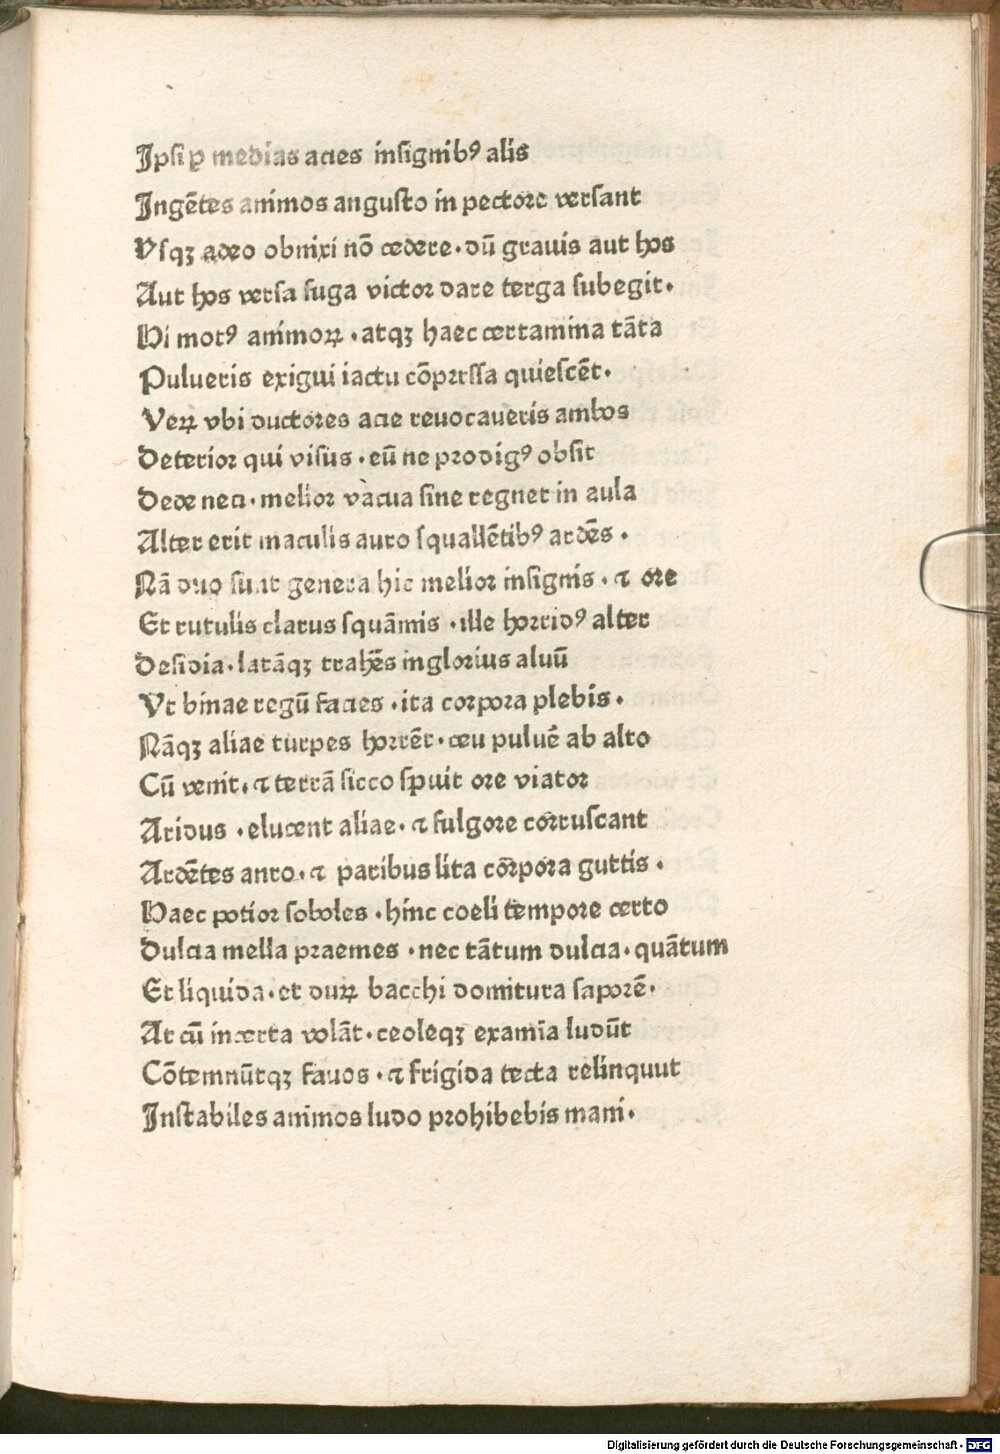 Ipsi ꝑ medias acies insignibꝰ alis
Ingētes animos angusto in pectore versant
Vsqꝫ adeo obnixi nō cedere · dū grauis aut hos
Aut hos versa fuga victor dare terga subegit ·
Hi motꝰ animoꝝ · atqꝫ haec certamina tāta
Pulueris exigui iactu cōpressa quiescēt ·
Veꝝ vbi ductores acie reuocaueris ambos
Deterior qui visus · eū ne prodigꝰ obsit
Dede neci · melior vacua sine regnet in aula
Alter erit maculis auro squallētibꝰ ardēs ·
Nā duo sunt genera hic melior insignis · ⁊ ore
Et rutulis clarus squāmis · ille horridꝰ alter
Desidia · latāqꝫ trahēs inglorius aluū
Vt binae regū facies · ita corpora plebis ·
Nāqꝫ aliae turpes horrēt · ceu puluē ab alto
Cū venit · ⁊ terrā sicco spuit ore viator
Aridus · elucent aliae · ⁊ fulgore corruscant
Ardētes auro · ⁊ paribus lita corpora guttis ·
Haec potior soboles · hinc coeli tempore certo
Dulcia mella praemes · nec tātum dulcia · quātum
Et liquida · et duꝝ bacchi domitura saporē ·
At cū incerta volāt · ceoleqꝫ examīa ludūt
Cōtemnūtqꝫ fauos · ⁊ frigida tecta relinquut
Instabiles animos ludo prohibebis inani ·
Digitalisierung gefördert durch die Deutsche Forschungsgemeinschaft - DFG